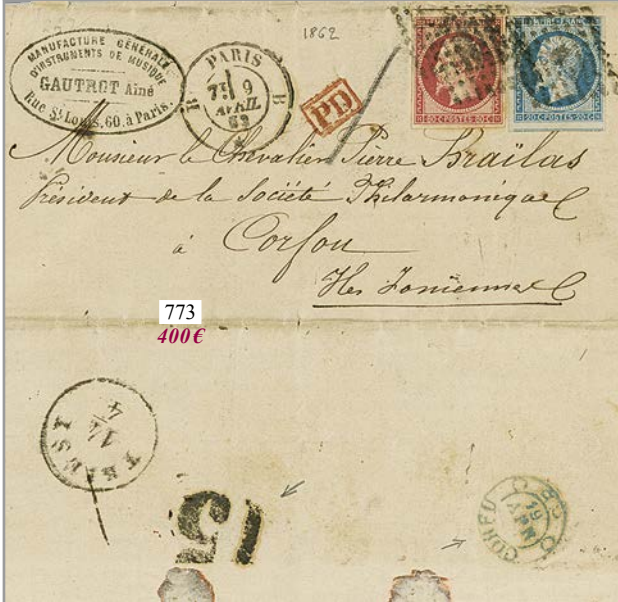 1862
MANUFACTURE GÉNÉRALE
D'INSTRUMENTS DE MUSIQUE
GAUTROT Aîné
Rue St Louis, 60, à Paris.
PARIS
B B
6
AVRIL
62
PD
80 C POSTES 80 C
20 C POSTES 20 C
Monsieur le Chevalier Pierre Braïlas
Président de la Société Philarmonique
à Corfou
Iles Ioniennes
773
400€
TRIEST
14
4
15
CORFU
19